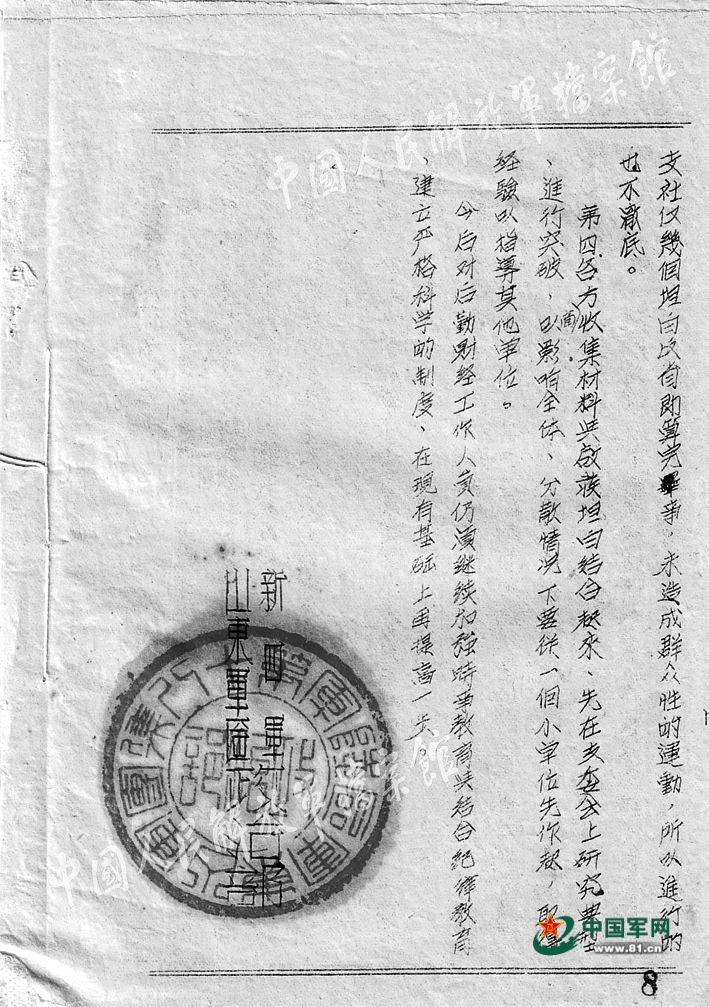 支社仅幾個坦白反省即算完畢事，未造成群众性的運動，所以進行的
也不澈底。
第四各方收集材料与啟蒙坦白结合起来、先在支委会上研究典型
、進行突破，以影响全体、分散情况下要從一個小单位先作起，取得
经驗以指導其他单位。
今后对后勤财经工作人員仍须继续加強時事教育与结合纪律教育
、建立严格科学的制度、在現有基础上再提高一步。
新四軍
山東軍區
中國人民解放軍檔案館
中國人民解放軍檔案館
中国军网
www.81.cn
8